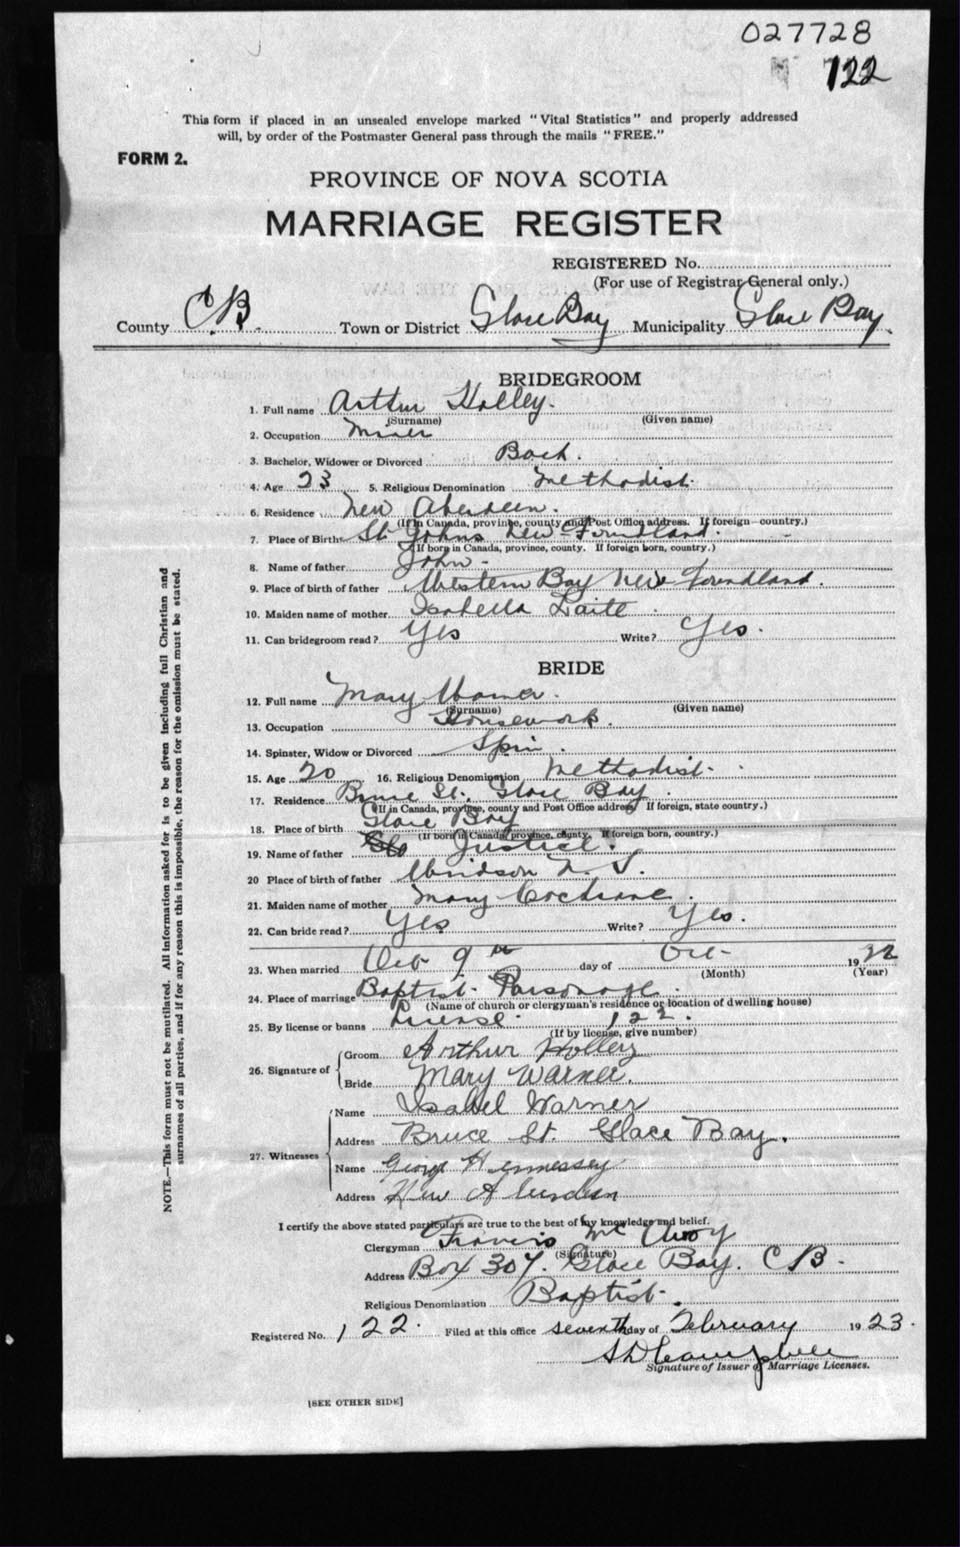 027728
122
This form if placed in an unsealed envelope marked "Vital Statistics" and properly addressed
will, by order of the Postmaster General pass through the mails "FREE."
FORM 2.
PROVINCE OF NOVA SCOTIA
MARRIAGE REGISTER
REGISTERED No.
(For use of Registrar General only.)
County C.B. Town or District Glace Bay Municipality Glace Bay.
BRIDEGROOM
1. Full name Arthur Holley.
(Surname) (Given name)
2. Occupation Miner
3. Bachelor, Widower or Divorced Bach.
4. Age 23 5. Religious Denomination Methodist.
6. Residence New Aberdeen.
(If in Canada, province, county and Post Office address. If foreign—country.)
7. Place of Birth St. Johns New-Foundland.
(If born in Canada, province, county. If foreign born, country.)
8. Name of father John -
9. Place of birth of father Western Bay New Foundland.
10. Maiden name of mother Isabella Laite.
11. Can bridegroom read? Yes Write? Yes.
BRIDE
12. Full name Mary Warner.
(Surname) (Given name)
13. Occupation Housework.
14. Spinster, Widow or Divorced Spin.
15. Age 20 16. Religious Denomination Methodist.
17. Residence Bruce St. Glace Bay.
(If in Canada, province, county and Post Office address. If foreign, state country.)
18. Place of birth Glace Bay
(If born in Canada, province, county. If foreign born, country.)
19. Name of father Justice.
20 Place of birth of father Windson N. S.
21. Maiden name of mother Mary Cochrane.
22. Can bride read? Yes Write? Yes.
23. When married 9th day of Oct- 1922
(Month) (Year)
24. Place of marriage Baptist Parsonage.
(Name of church or clergyman's residence or location of dwelling house)
25. By license or banns License. 122.
(If by license, give number)
26. Signature of Groom Arthur Holley
Bride Mary Warner.
27. Witnesses Name Isabel Warner
Address Bruce St. Glace Bay.
Name George Hennessey
Address New Aberdeen
I certify the above stated particulars are true to the best of my knowledge and belief.
Clergyman Francis Mc Avoy
(Signature)
Address Box 307. Glace Bay. C B.
Religious Denomination Baptist.
Registered No. 122. Filed at this office seventh day of February 1923.
S D Campbell
Signature of Issuer of Marriage Licenses.
[SEE OTHER SIDE]
NOTE.—This form must not be mutilated. All information asked for is to be given including full Christian and
surnames of all parties, and if for any reason this is impossible, the reason for the omission must be stated.